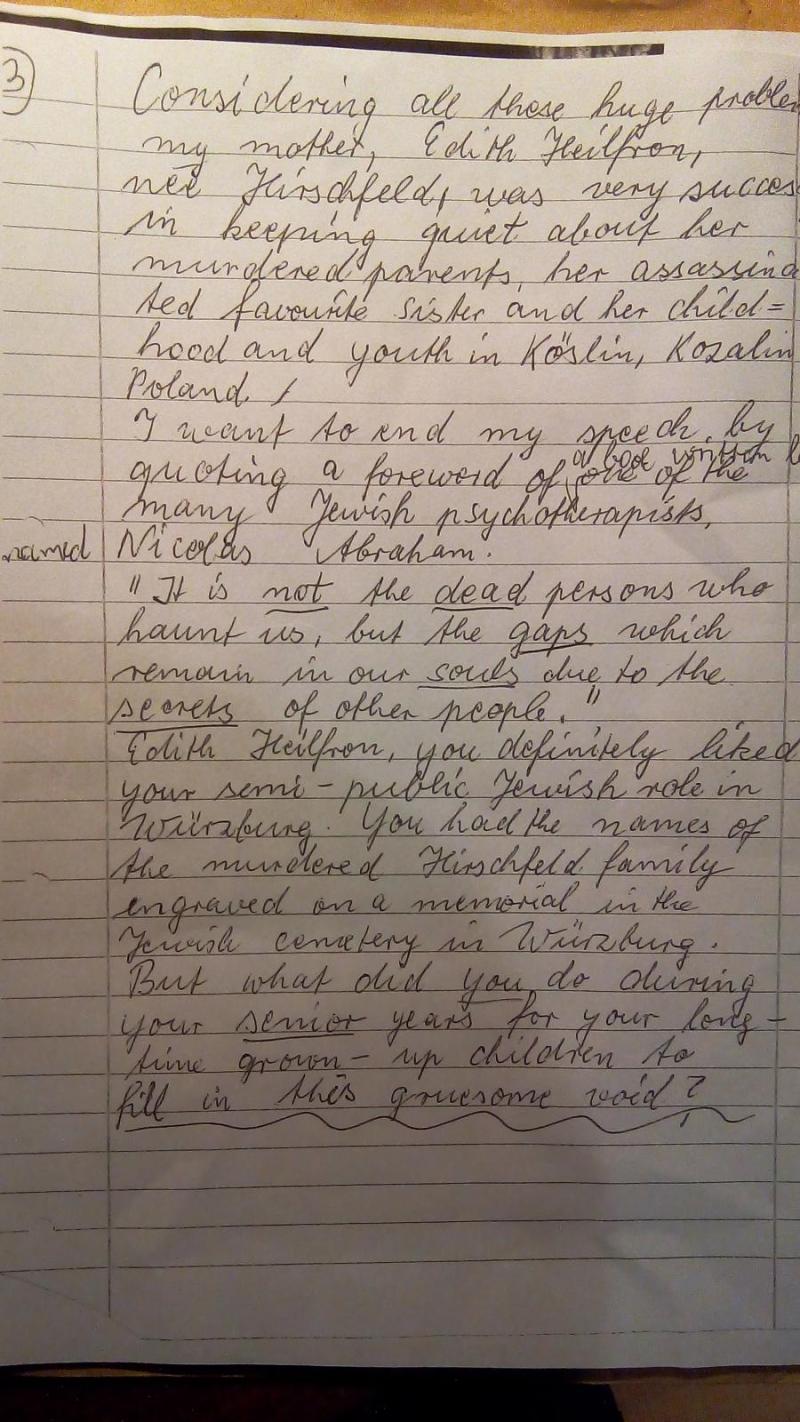 3
Considering all these huge proble
my mother, Edith Heilfron,
neé Hirschfeld, was very succes
in keeping quiet about her
murdered parents, her assassina
ted favourite sister and her child=
hood and youth in Köslin, Koszalin
Poland. /
I want to end my speech, by
a book written b
quoting a foreword of one of the
many Jewish psychotherapists,
named Nicolas Abraham.
"It is not the dead persons who
haunt us, but the gaps which
remain in our souls due to the
secrets of other people."
Edith Heilfron, you definitely liked
your semi-public Jewish role in
Würzburg. You had the names of
the murdered Hirschfeld family
engraved on a memorial in the
Jewish cemetery in Würzburg.
But what did you do during
your senior years for your long-
time grown-up children to
fill in this gruesome void?